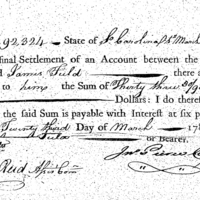 92324 State of S. Carolina 5th March
final Settlement of an Account between the
d James Field there a
to him the Sum of Thirty three 30/90
Dollars: I do there
the said Sum is payable with Interest at six p
Twenty third Day of March 178
Field or Bearer.
Jno Pierce C
Reid Assist Com